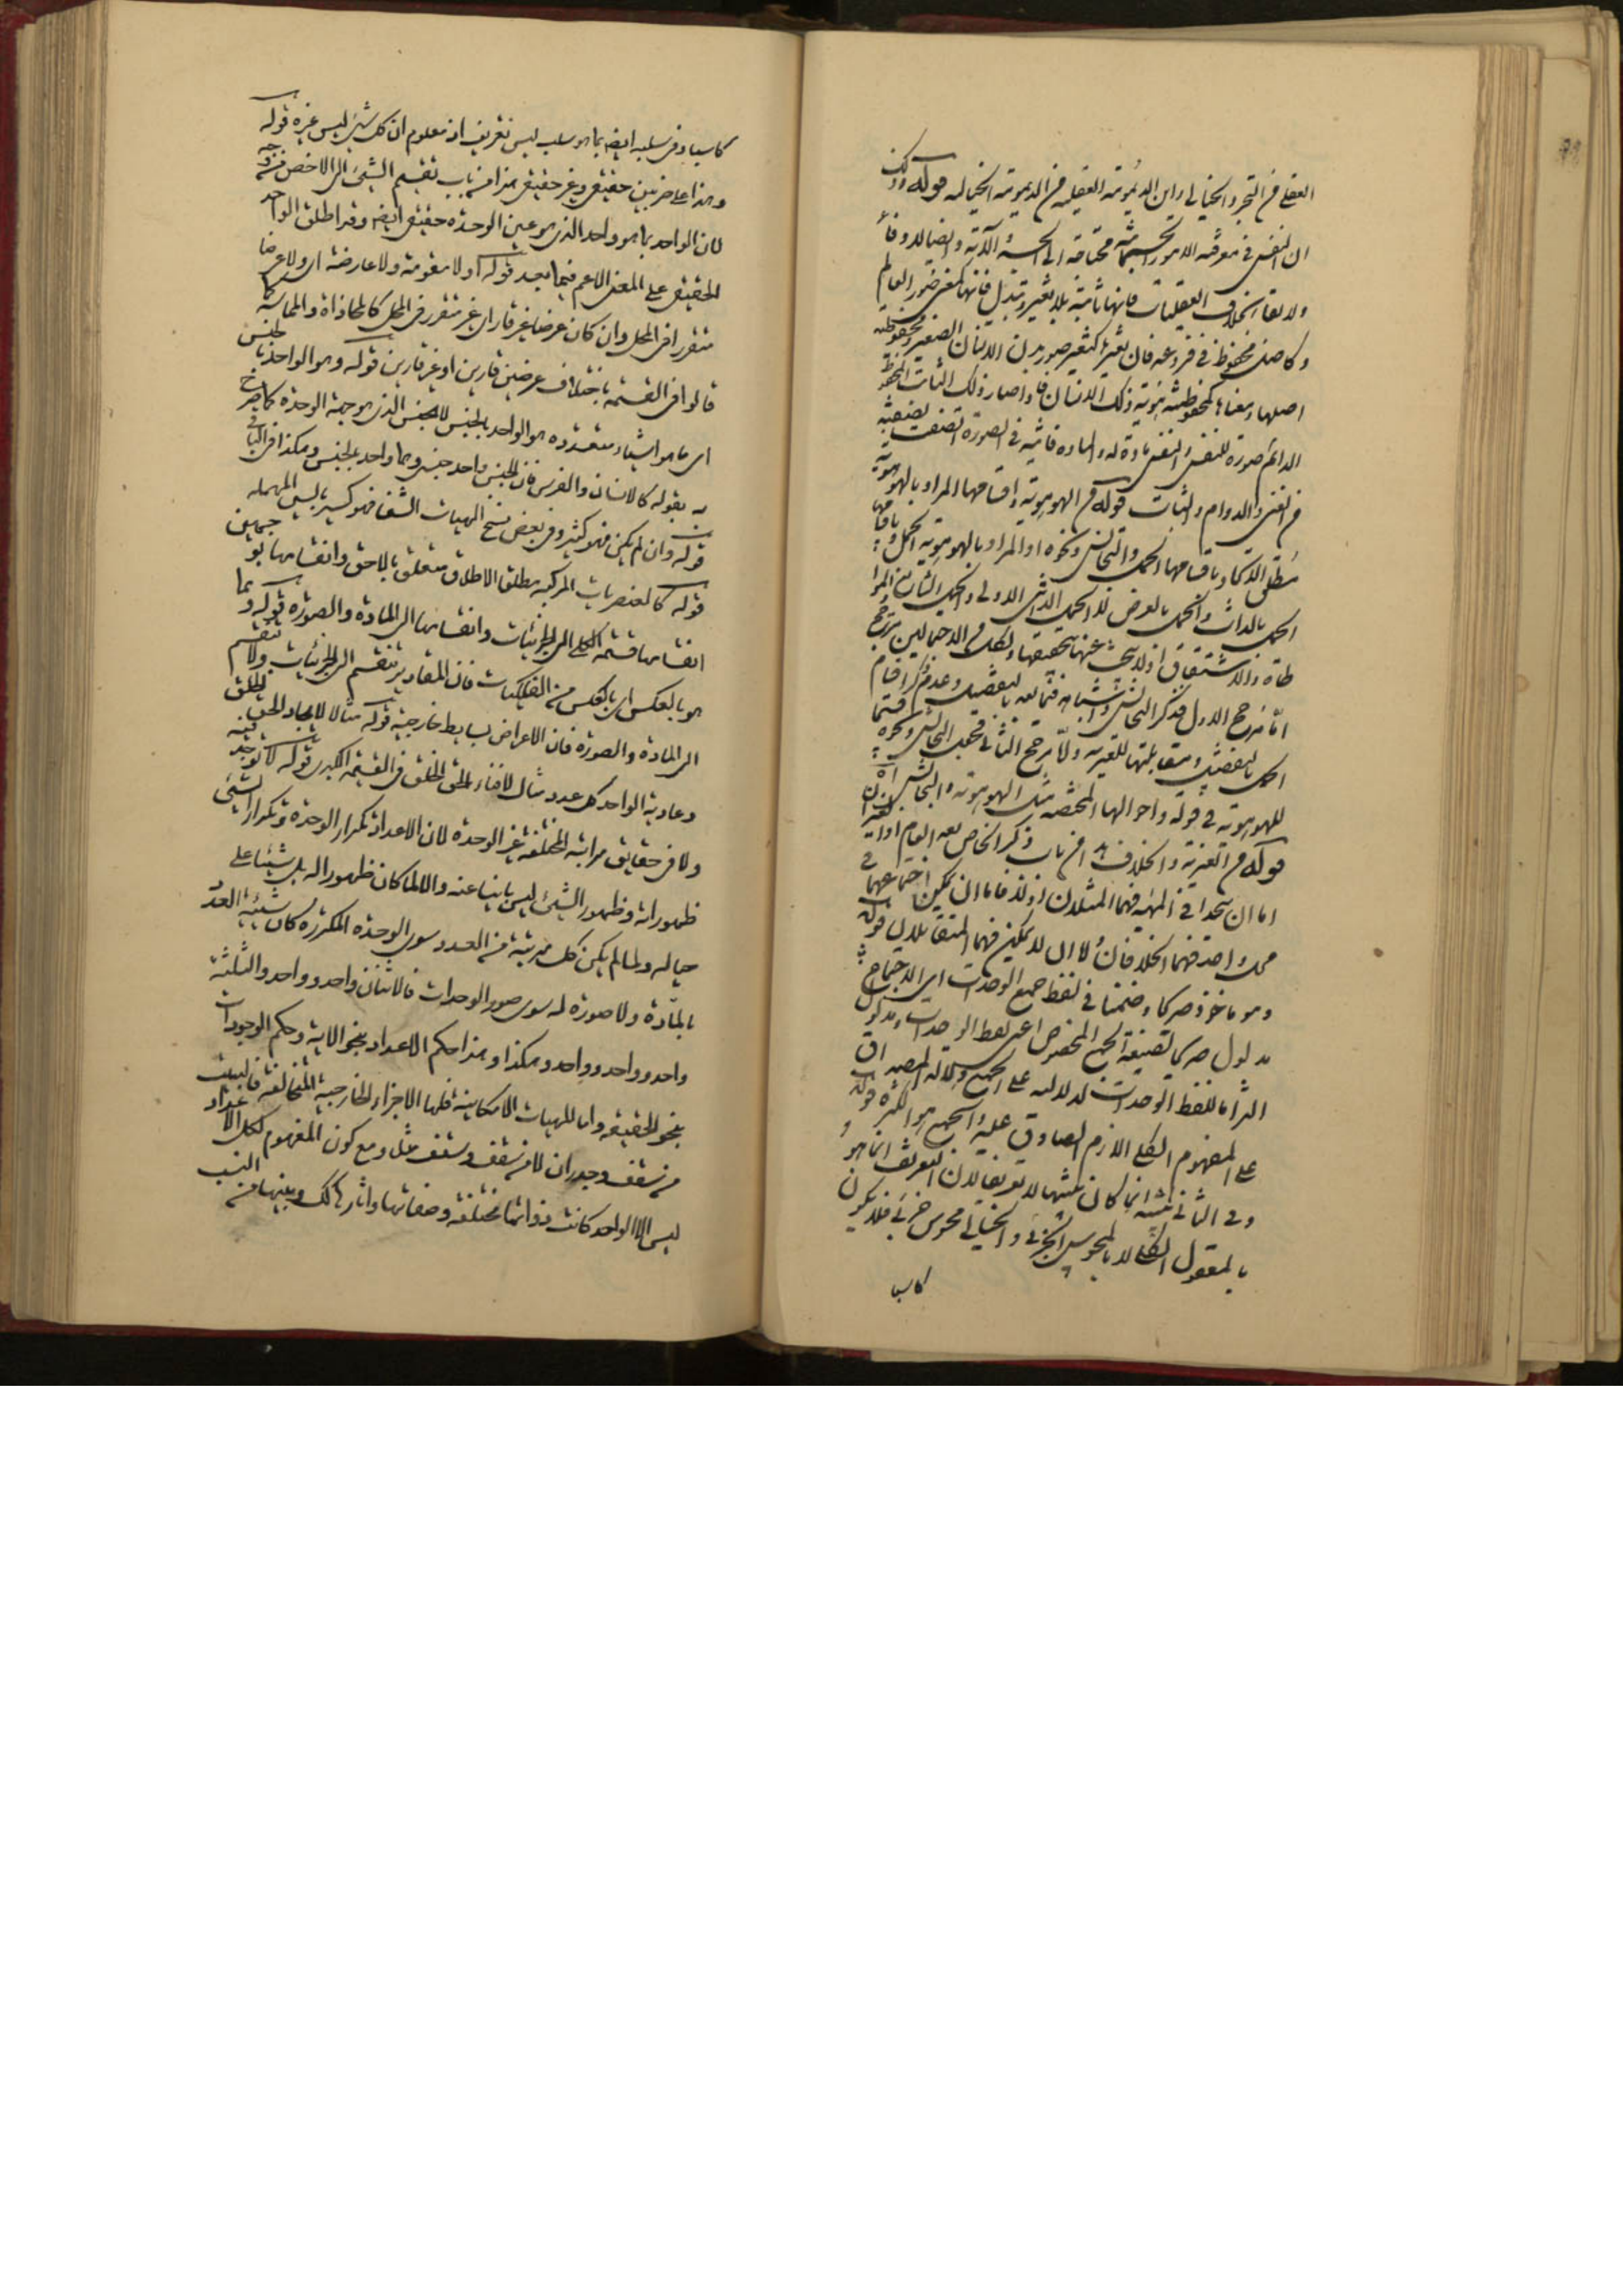 العقلی من التجرد الخیالی و این الدیمومة العقلیه من الدیمومة الخیالیه قوله و ذلک
ان النفس فی معرفة الامور الجسمانیة محتاجة الی الحس و الآلة و ایضا لا دوام
و لا بقا بخلاف العقلیات فانها ثابتة بلا تغیر و تبدل فانها کنفس صور العالم
و کاصل محفوظ فی فروعه فان تغیرها کتغیر صور بدن الانسان الصغیر و محفوظیة
اصلها و بقاها کمحفوظیة هویة ذلک الانسان فاذا صار ذلک الثابت المحفوظ
الدائم صورة للنفس و النفس مادة له و الماده فانیة فی الصورة اتصفت بصفته
من الغنی و الدوام و الثبات قوله من الهوهویة و اقسامها المراد بالهوهویة
مطلق الاتحاد باقسامها الحمل و التجانس و نحوه او المراد بالهوهویة الحمل و باقسامها
الحمل بالذات و الحمل بالعرض لا الحمل الذاتی الاولی و الحمل الشایع
طاة و الاشتقاق اذ لا یبحث عنها بحقیقتها و لکل من الاحتمالین مرجح
اما مرجح الاول فذکر التجانس و اشباهه فیما بعد بالتفصیل و عدم ذکر اقسام
الحمل بالتفصیل و بمقابلتها للغیریة و اما مرجح الثانی فجعل التجانس و نحوه قسیما
للهوهویة فی قوله و احوالها المختصة مثل الهوهویة و التجانس آه
قوله من الغیریة و الخلاف هذا من باب ذکر الخاص بعد العام اذ الغیران
اما ان یتحدا فی المهیة فهما المثلان او لا فاما ان یمکن اجتماعهما فی
محل واحد فهما الخلافان او لا لا یمکن فهما المتقابلان قوله
و هو ماخوذ صریحا و ضمنا فی لفظ جمیع الوحدات ای الاجتماع
مدلول صریحا لصیغة الجمع المخصوص اعنی لفظ الوحدات و مدلول
التزاما للفظ الوحدات لدلالته علی الجمیع دلالة المصداق
علی المفهوم الکلی اللازم الصادق علیه و الجمیع هو الکثره قوله
و فی الثانی تنبیه انما کان تنبیها لا تعریفا لان التعریف انما هو
بالمعقول الکلی لا بالمحسوس الجزئی و الخیالی محسوس جزئی فلا یکون
کاسبا
کاسبا و فی سلبه ایضه بما هو سلب لیس تعریف اذ معلوم ان کل شئ لیس غیره قوله
و هذا علی ضربین حقیقی و غیر حقیقی هذا من باب تقسیم الشئ الی الاخص منه من وجه
لان الواحد بما هو واحد الذی هو عین الوحدة حقیقی ایضه و قد اطلق الواحد
الحقیقی علی المعنی الاعم فیما بعد قوله او لا مقومة و لا عارضة ای و لا عرضا
متقررا فی المحل و ان کان عرضا غیر قار ای غیر متقرر فی المحل کالمحاذاة و المماسة کما
قالوا فی القسمة باختلاف عرضین قارین او غیر قارین قوله و هو الواحد بالجنس
ای ما هو اشیاء متعدده هو الواحد بالجنس لا الجنس الذی هو جهة الوحدة کما صرح
به بقوله کالانسان و الفرس فان الجنس واحد جنسی و هما واحد بالجنس و هکذا فی البا قی
قوله و ان لم یکن فهو کثیر و فی بعض نسخ الهیات الشفا فهو کسیر بالسین المهمله
قوله کالعنصریات المرکبه مطلق الاطلاق متعلق بالاحق و انقسامها بو جهین
انقسامها قسمة الکلی الی الجزئیات و انقسامها الی المادة و الصورة قوله و ما
هو بالعکس ای بالعکس من الفلکیات فان المقادیر تنقسم الی الجزئیات و لا تنقسم
الی المادة و الصورة فان الاعراض بسایط خارجیة قوله مثالا لایجاد الحق الخلق
و عادیة الواحد کل عدد مثال لافناء الحق الخلق فی القیمة الکبری قوله لا توجد فیه
و لا فی حقایق مراتبه المختلفة غیر الوحدة لان الاعداد تکرار الوحدة و تکرار الشئ
ظهوراته و ظهور الشئ لیس باینا عنه و الا لما کان ظهورا له بل شیئا علی
حیاله و لما لم یکن کل مرتبة من العدد سوی الوحدة المکررة کان شیئیة العدد
بالمادة و لا صورة له سوی صور الوحدات فالاثنان واحد و واحد و الثلثة
واحد و واحد و واحد و هکذا و هذا حکم الاعداد بنحو الآیة و حکم الوجودات
بنحو الحقیقه و اما للهیات الامکانیة فلها الاجزاء الخارجیة المتخالفة فالبیت
من سقف و جدران لا من سقف و سقف مثلا و مع کون المفهوم لکل الاعداد
لیس الا الواحد کانت ذواتها مختلفة و صفاتها و آثارها کک و بینها من النسب